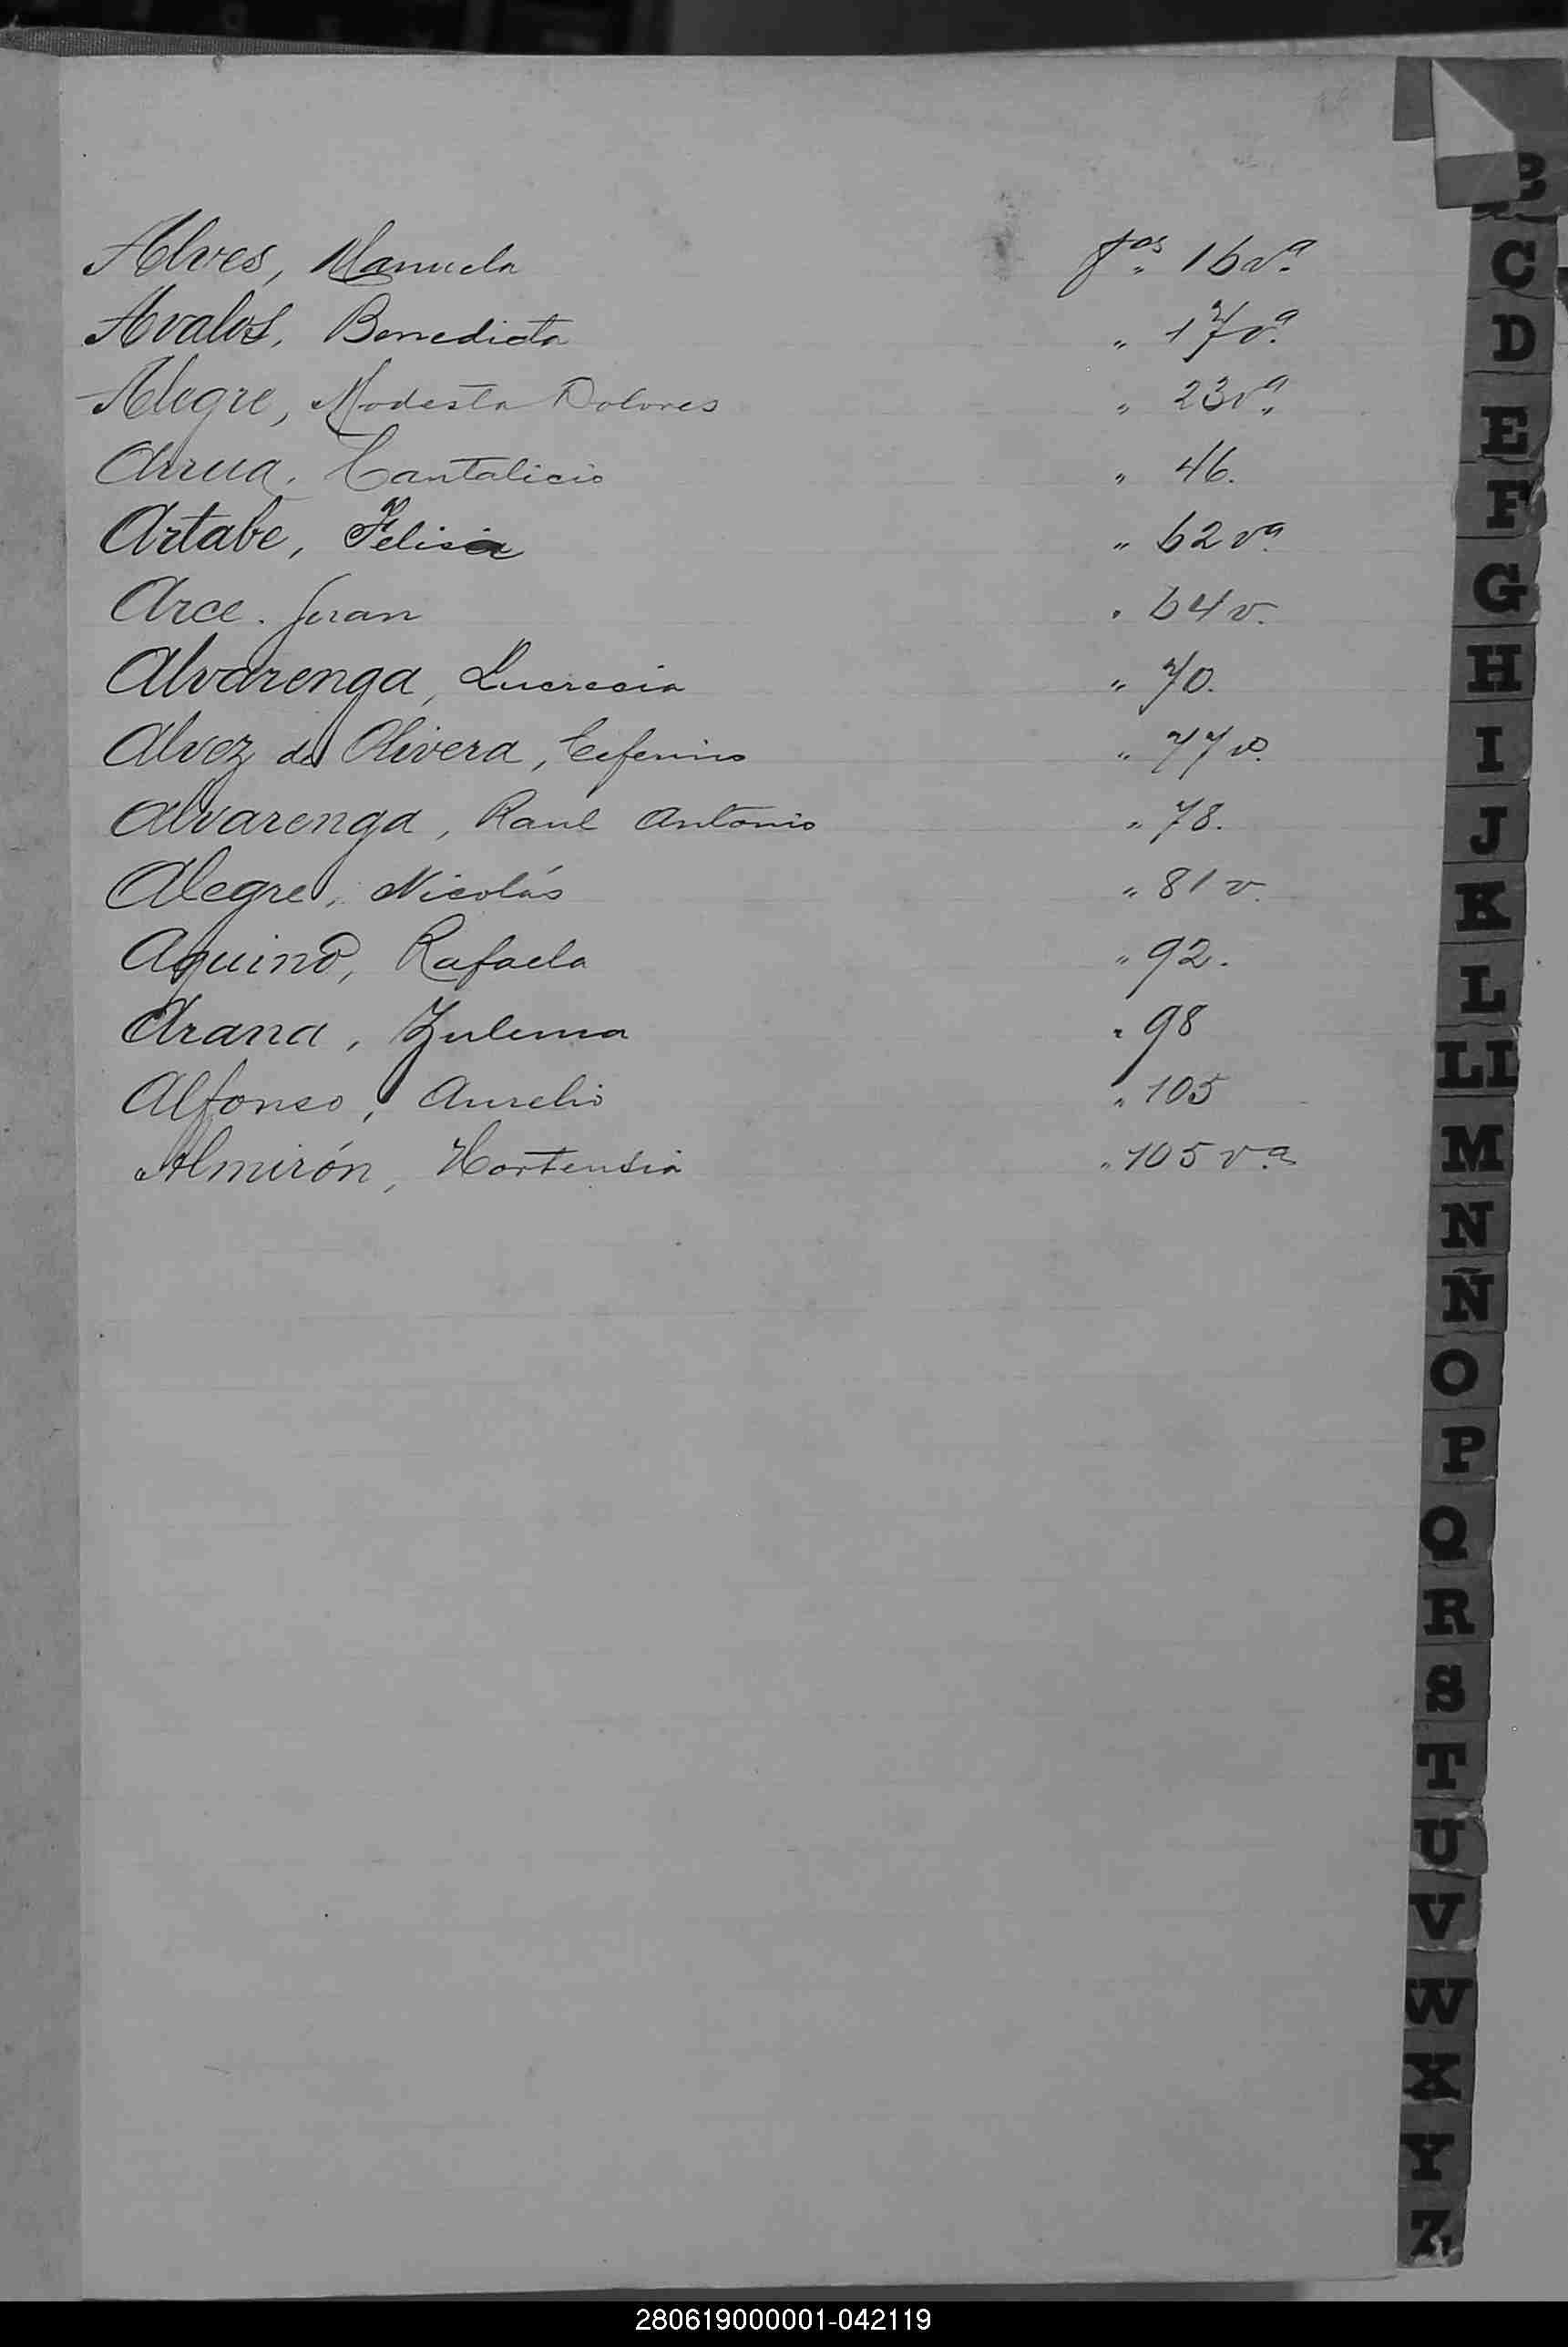 Alves, Manuela fos. 16 va.
Avalos, Benedicta " 17 va.
Alegre, Modesta Dolores " 23 va.
Arrua, Cantalicio " 46.
Artabe, Felisa " 62 va.
Arce. Juan " 64 v.
Alvarenga, Lucrecia " 70.
Alvez de Olivera, Ceferino " 77 v.
Alvarenga, Raul Antonio " 78.
Alegre, Nicolás " 81 v.
Aquino, Rafaela " 92.
Arana, Zulema " 98
Alfonso, Aurelio " 105
Almirón, Hortensia " 105 va.
B
C
D
E
F
G
H
I
J
K
L
LL
M
N
Ñ
O
P
Q
R
S
T
U
V
W
X
Y
Z
280619000001-042119